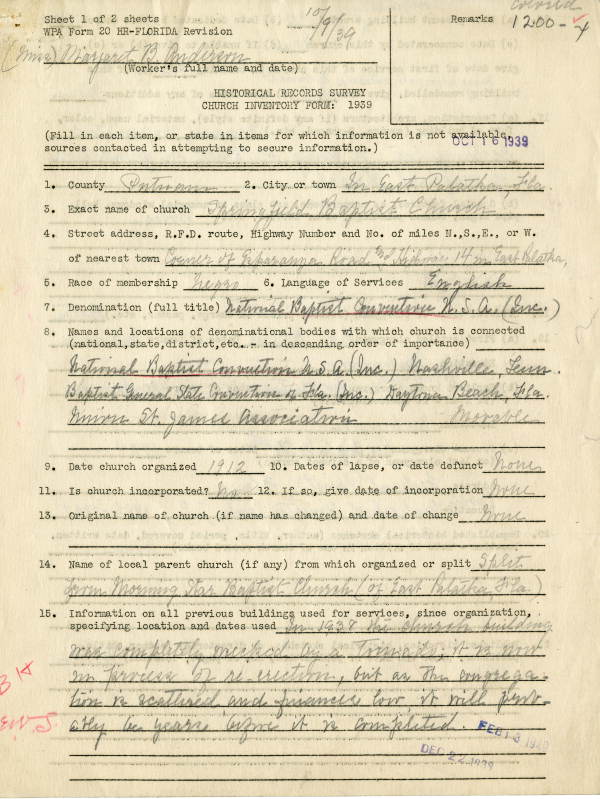 colored
Sheet 1 of 2 sheets
WPA Form 20 HR-FLORIDA Revision
10/9/39
Remarks
1200-
(Miss) Margaret B. Anderson
(Worker's full name and date)
HISTORICAL RECORDS SURVEY
CHURCH INVENTORY FORM: 1939
(Fill in each item, or state in items for which information is not available,
sources contacted in attempting to secure information.)
OCT 16 1939
1. County Putnam 2. City or town In East Palatka, Fla.
3. Exact name of church Springfield Baptist Church
4. Street address, R.F.D. route, Highway Number and No. of miles N.,S.,E., or W.
of nearest town Corner of Road Highway 14 in East Palatka,
5. Race of membership Negro 6. Language of Services English
7. Denomination (full title) National Baptist Convention U.S.A. (Inc.)
8. Names and locations of denominational bodies with which church is connected
(national,state,district,etc. - in descending order of importance)
National Baptist Convention U.S.A. (Inc.) Nashville, Tenn.
Baptist General State Convention of Fla. (Inc.) Daytona Beach, Fla.
Union St. James Association Movable
9. Date church organized 1912 10. Dates of lapse, or date defunct None
11. Is church incorporated? No 12. If so, give date of incorporation None
13. Original name of church (if name has changed) and date of change None
14. Name of local parent church (if any) from which organized or split Split
from Morning Star Baptist Church (of East Palatka, Fla.)
15. Information on all previous buildings used for services, since organization,
specifying location and dates used In 1938 the church building
was completely wrecked by a tornado; it is now
in process of re-erection, but as the congrega-
tion is scattered and finances low, it will prob-
ably be years before it is completed.
FEB 13 1940
DEC 22 1939